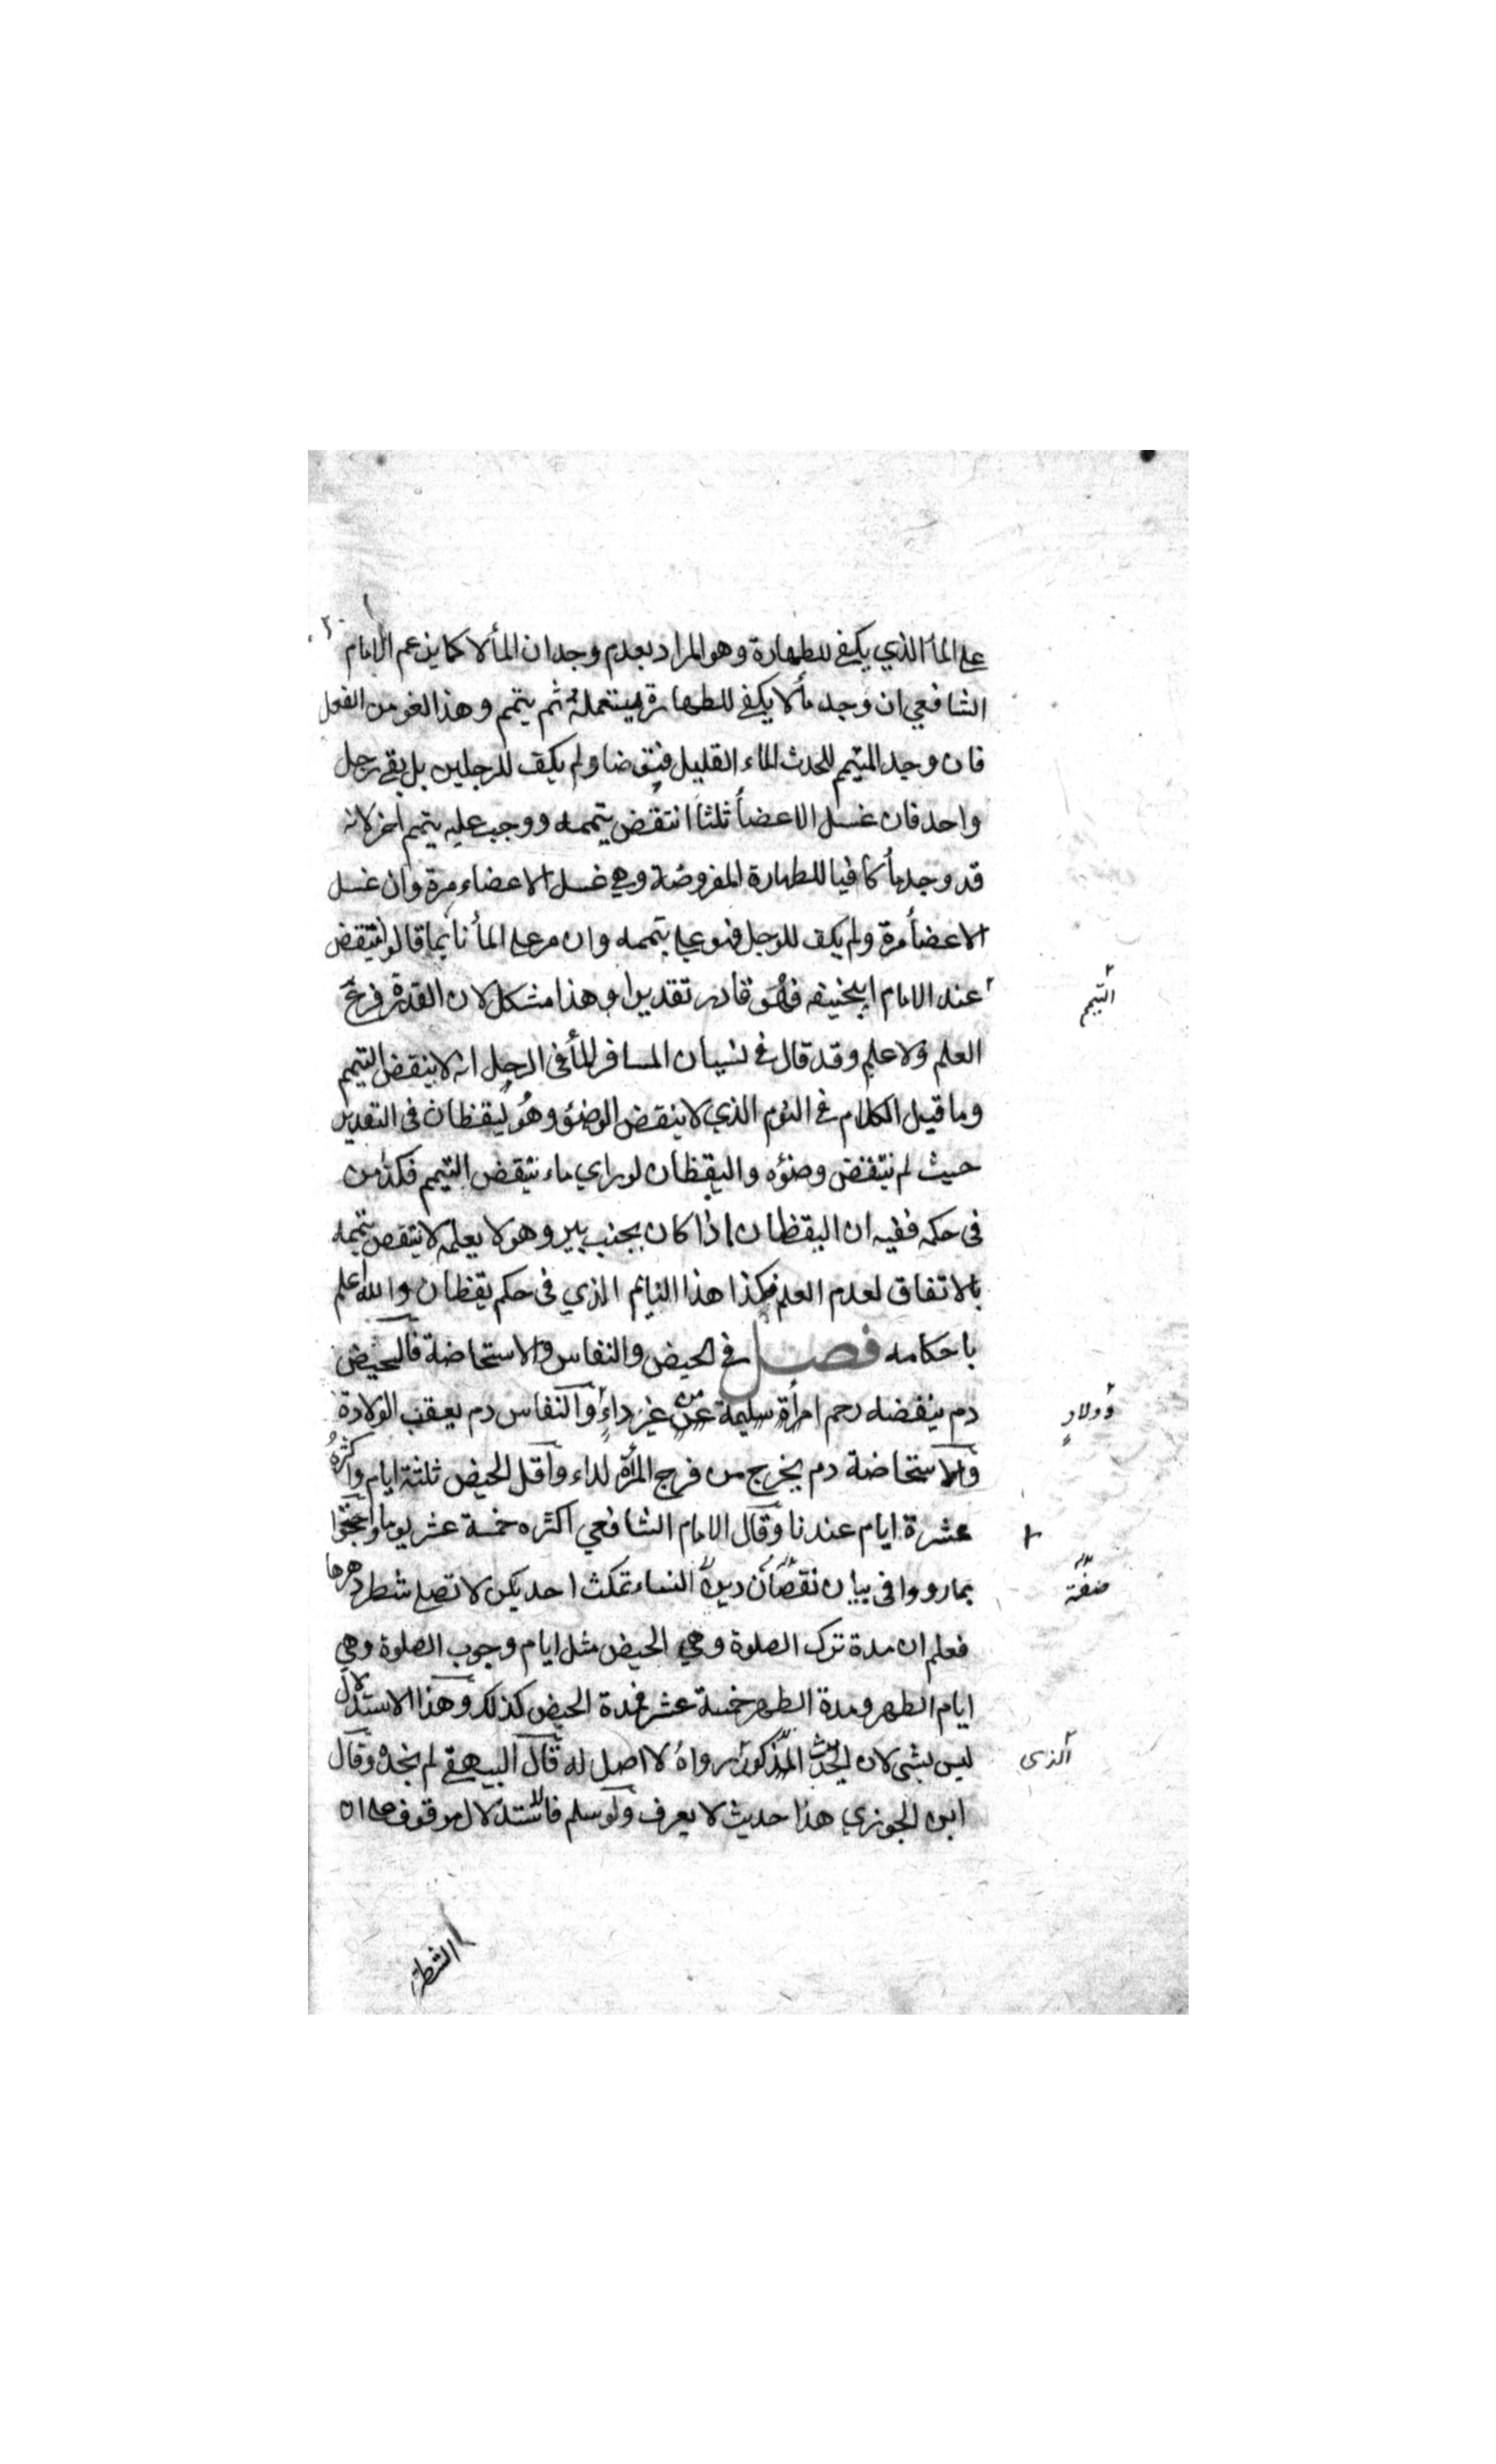 على المأ الذي يكفي للطهارة وهو المراد بعدم وجدان المأ لا كما يزعم الامام
الشافعي ان وجد مأ لا يكفي للطهارة يستعمله ثم يتمم وهذا لغو من القول
فان وجد المتيمم للحدث الماء القليل فتوضا ولم يكف للرجلين بل بقي رجل
واحد فان غسل الاعضأ ثلثا انتقض تيممه ووجب عليه تيمم اخر لانه
قد وجد مأ كافيا للطهارة المفروضة وهي غسل الاعضاء مرة وان غسل
الاعضأ مرة ولم يكف للرجل فهو على تيممه وان مر على المأ نايما قالوا ينتقض
عند الامام ابيحنيفه فهو قادر تقديرا وهذا مشكل لان القدرة فرع
التيمم
العلم ولا علم وقد قال في نسيان المسافر المأ في الرحل انه لا ينقض التيمم
وما قيل الكلام في النوم الذي لا ينقض الوضؤ وهو يقظان في التقدير
حيث لم ينتقض وضؤه واليقظان لو راي ماء ينتقض التيمم فكذا من
في حكمه ففيه ان اليقظان اذا كان بجنب بير وهو لا يعلمه لا ينتقض تيممه
بالاتفاق لعدم العلم فكذا هذا النايم الذي في حكم يقظان والله اعلم
باحكامه فصل في الحيض والنفاس والاستحاضة فالحيض
دم ينفضه رحم امرأة سليمة عن غير داءٍ والنفاس دم يعقب الولادة
وولادٍ
والاستحاضة دم يخرج من فرج المرأة لداء واقل الحيض ثلثة ايام واكثره
عشرة ايام عندنا وقال الامام الشافعي اكثره خمسة عشر يوما واحتجوا
بما رووا في بيان نقصان دين النساء تمكث احديكن لا تصلي شطر دهرها
فعلم ان مدة ترك الصلوة وهي الحيض مثل ايام وجوب الصلوة وهي
ايام الطهر ومدة الطهر خمسة عشر فمدة الحيض كذلك وهذا الاستدلال
ليس بشي لان الحديث المذكور رواه لا اصل له قال البيهقي لم نجده وقال
الذى
ابن الجوزي هذا حديث لا يعرف ولو سلم فالاستدلال موقوف على ان
الشطر